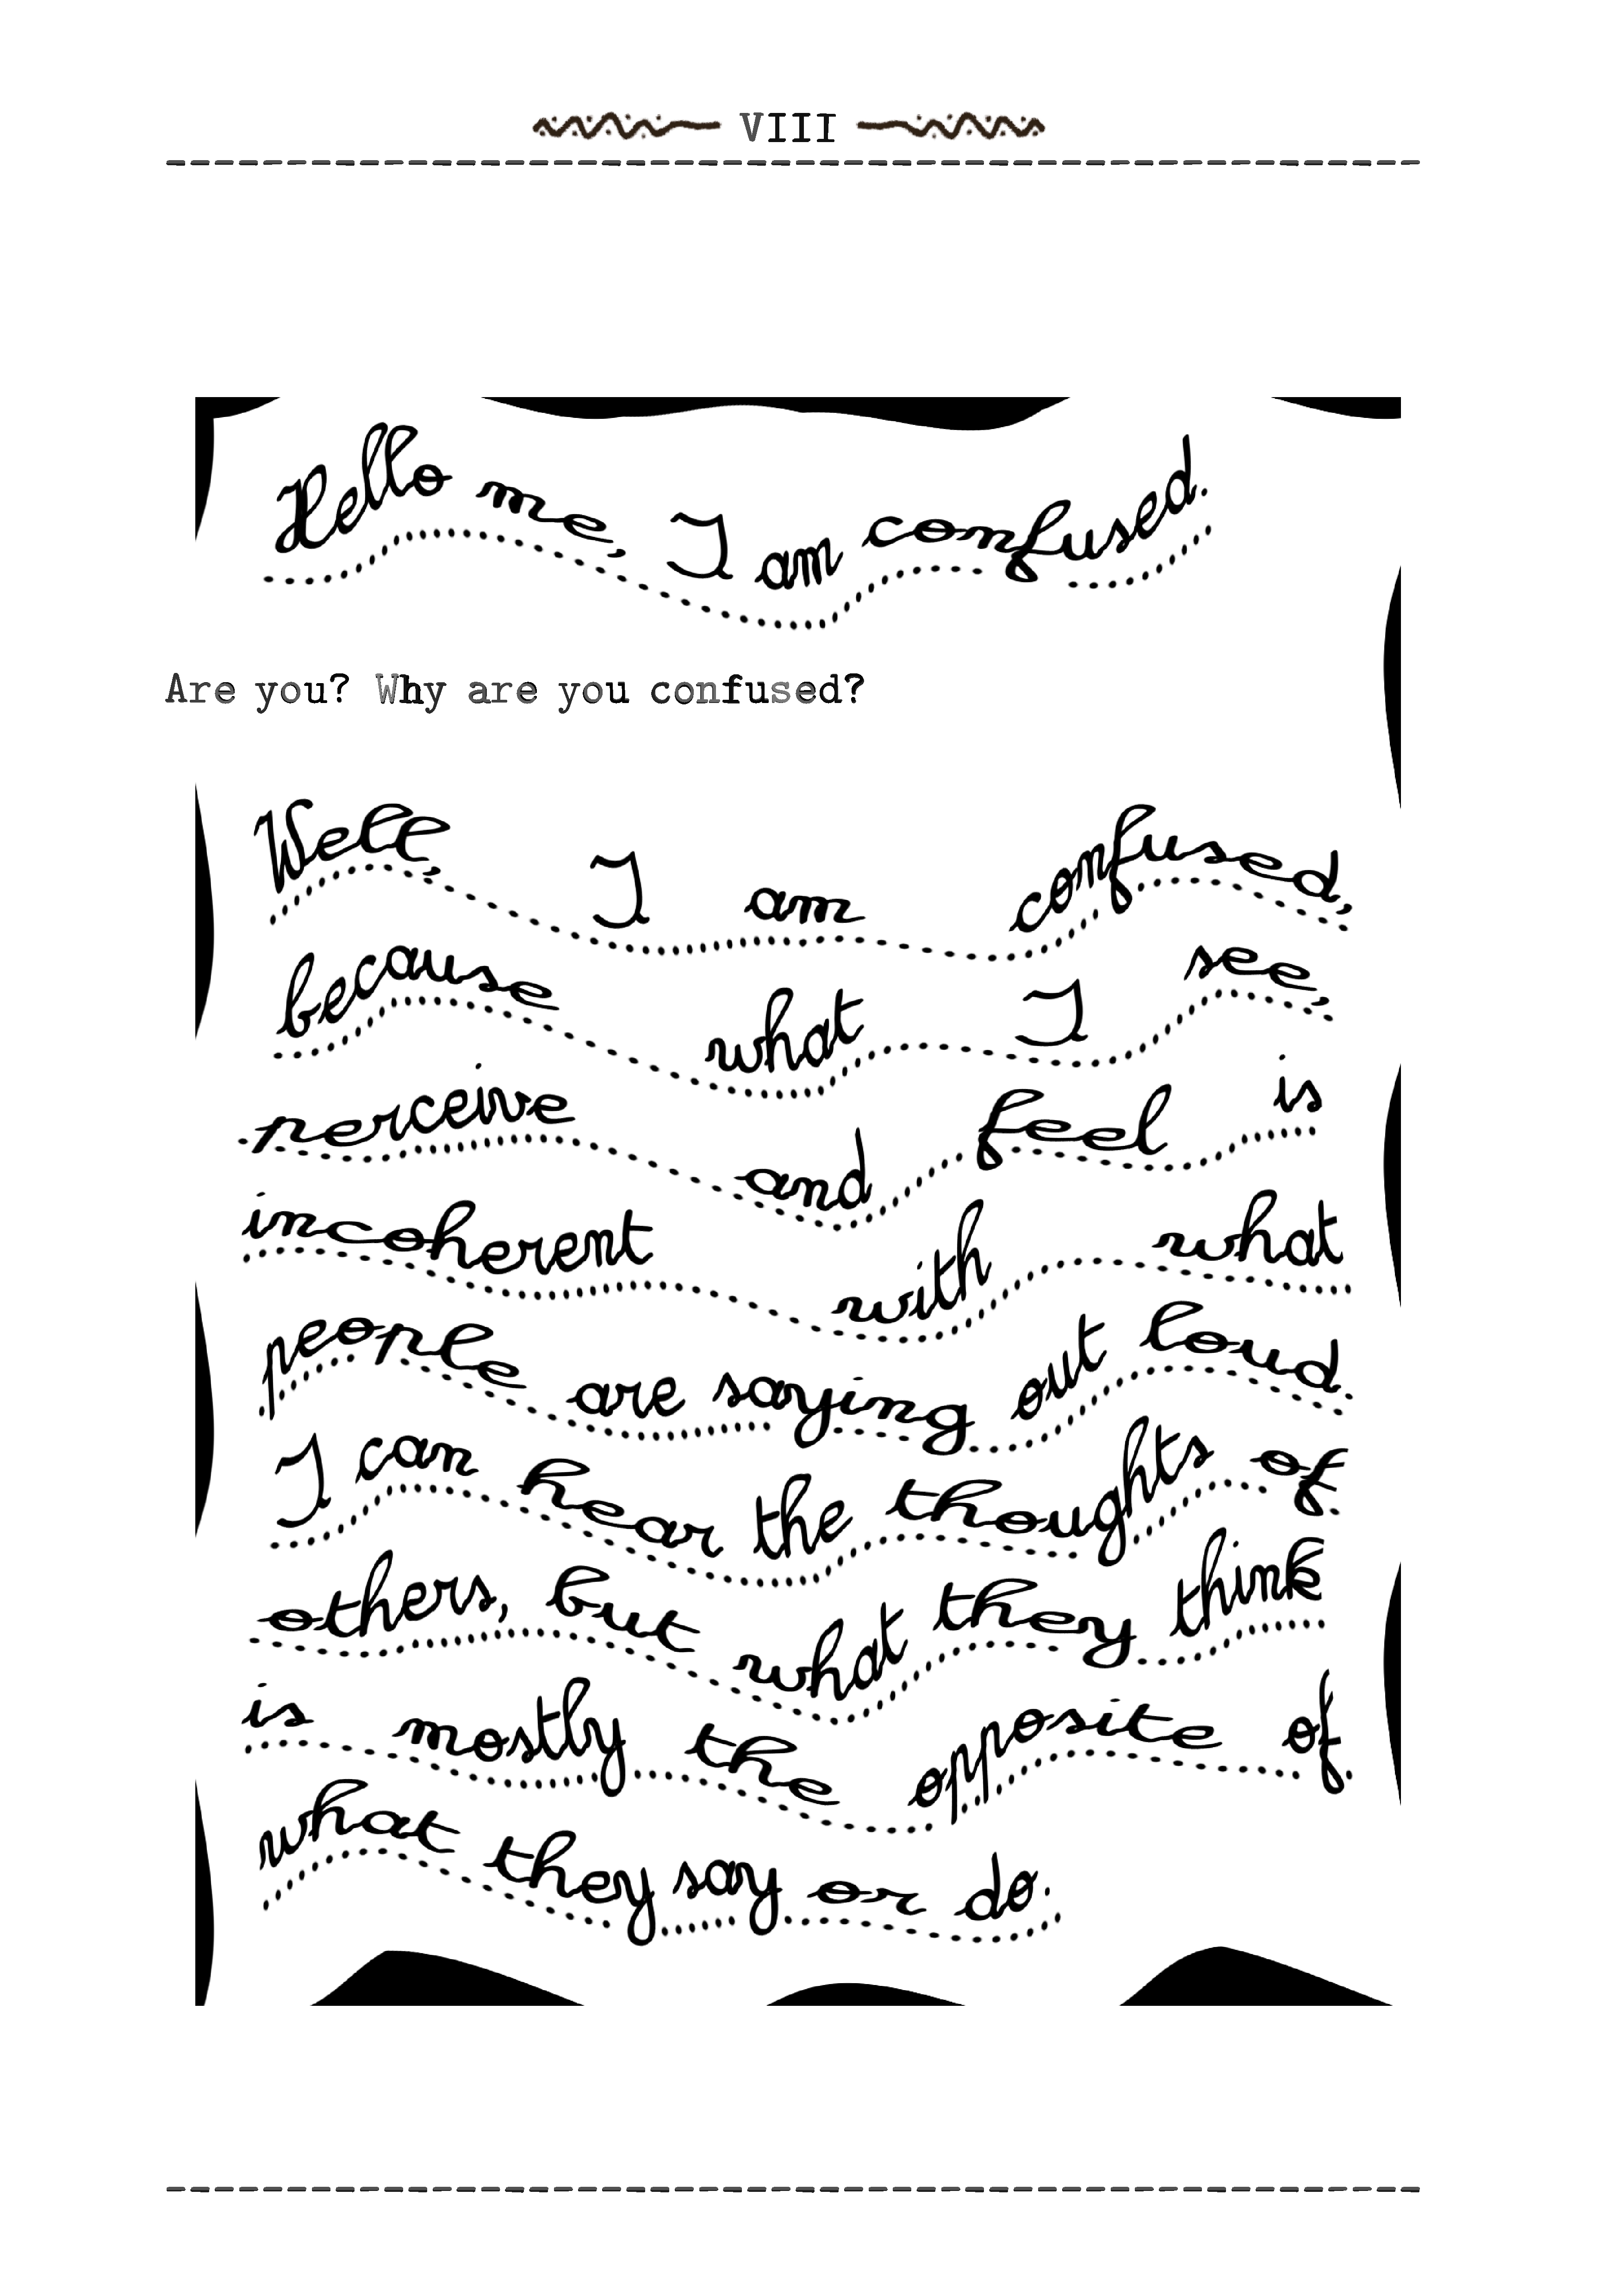 VIII
Hello me, I am confused.
Are you? Why are you confused?
Well, I am confused,
because what I see,
perceive and feel is
incoherent with what
people are saying out loud.
I can hear the thoughts of
others, but what they think
is mostly the opposite of
what they say or do.